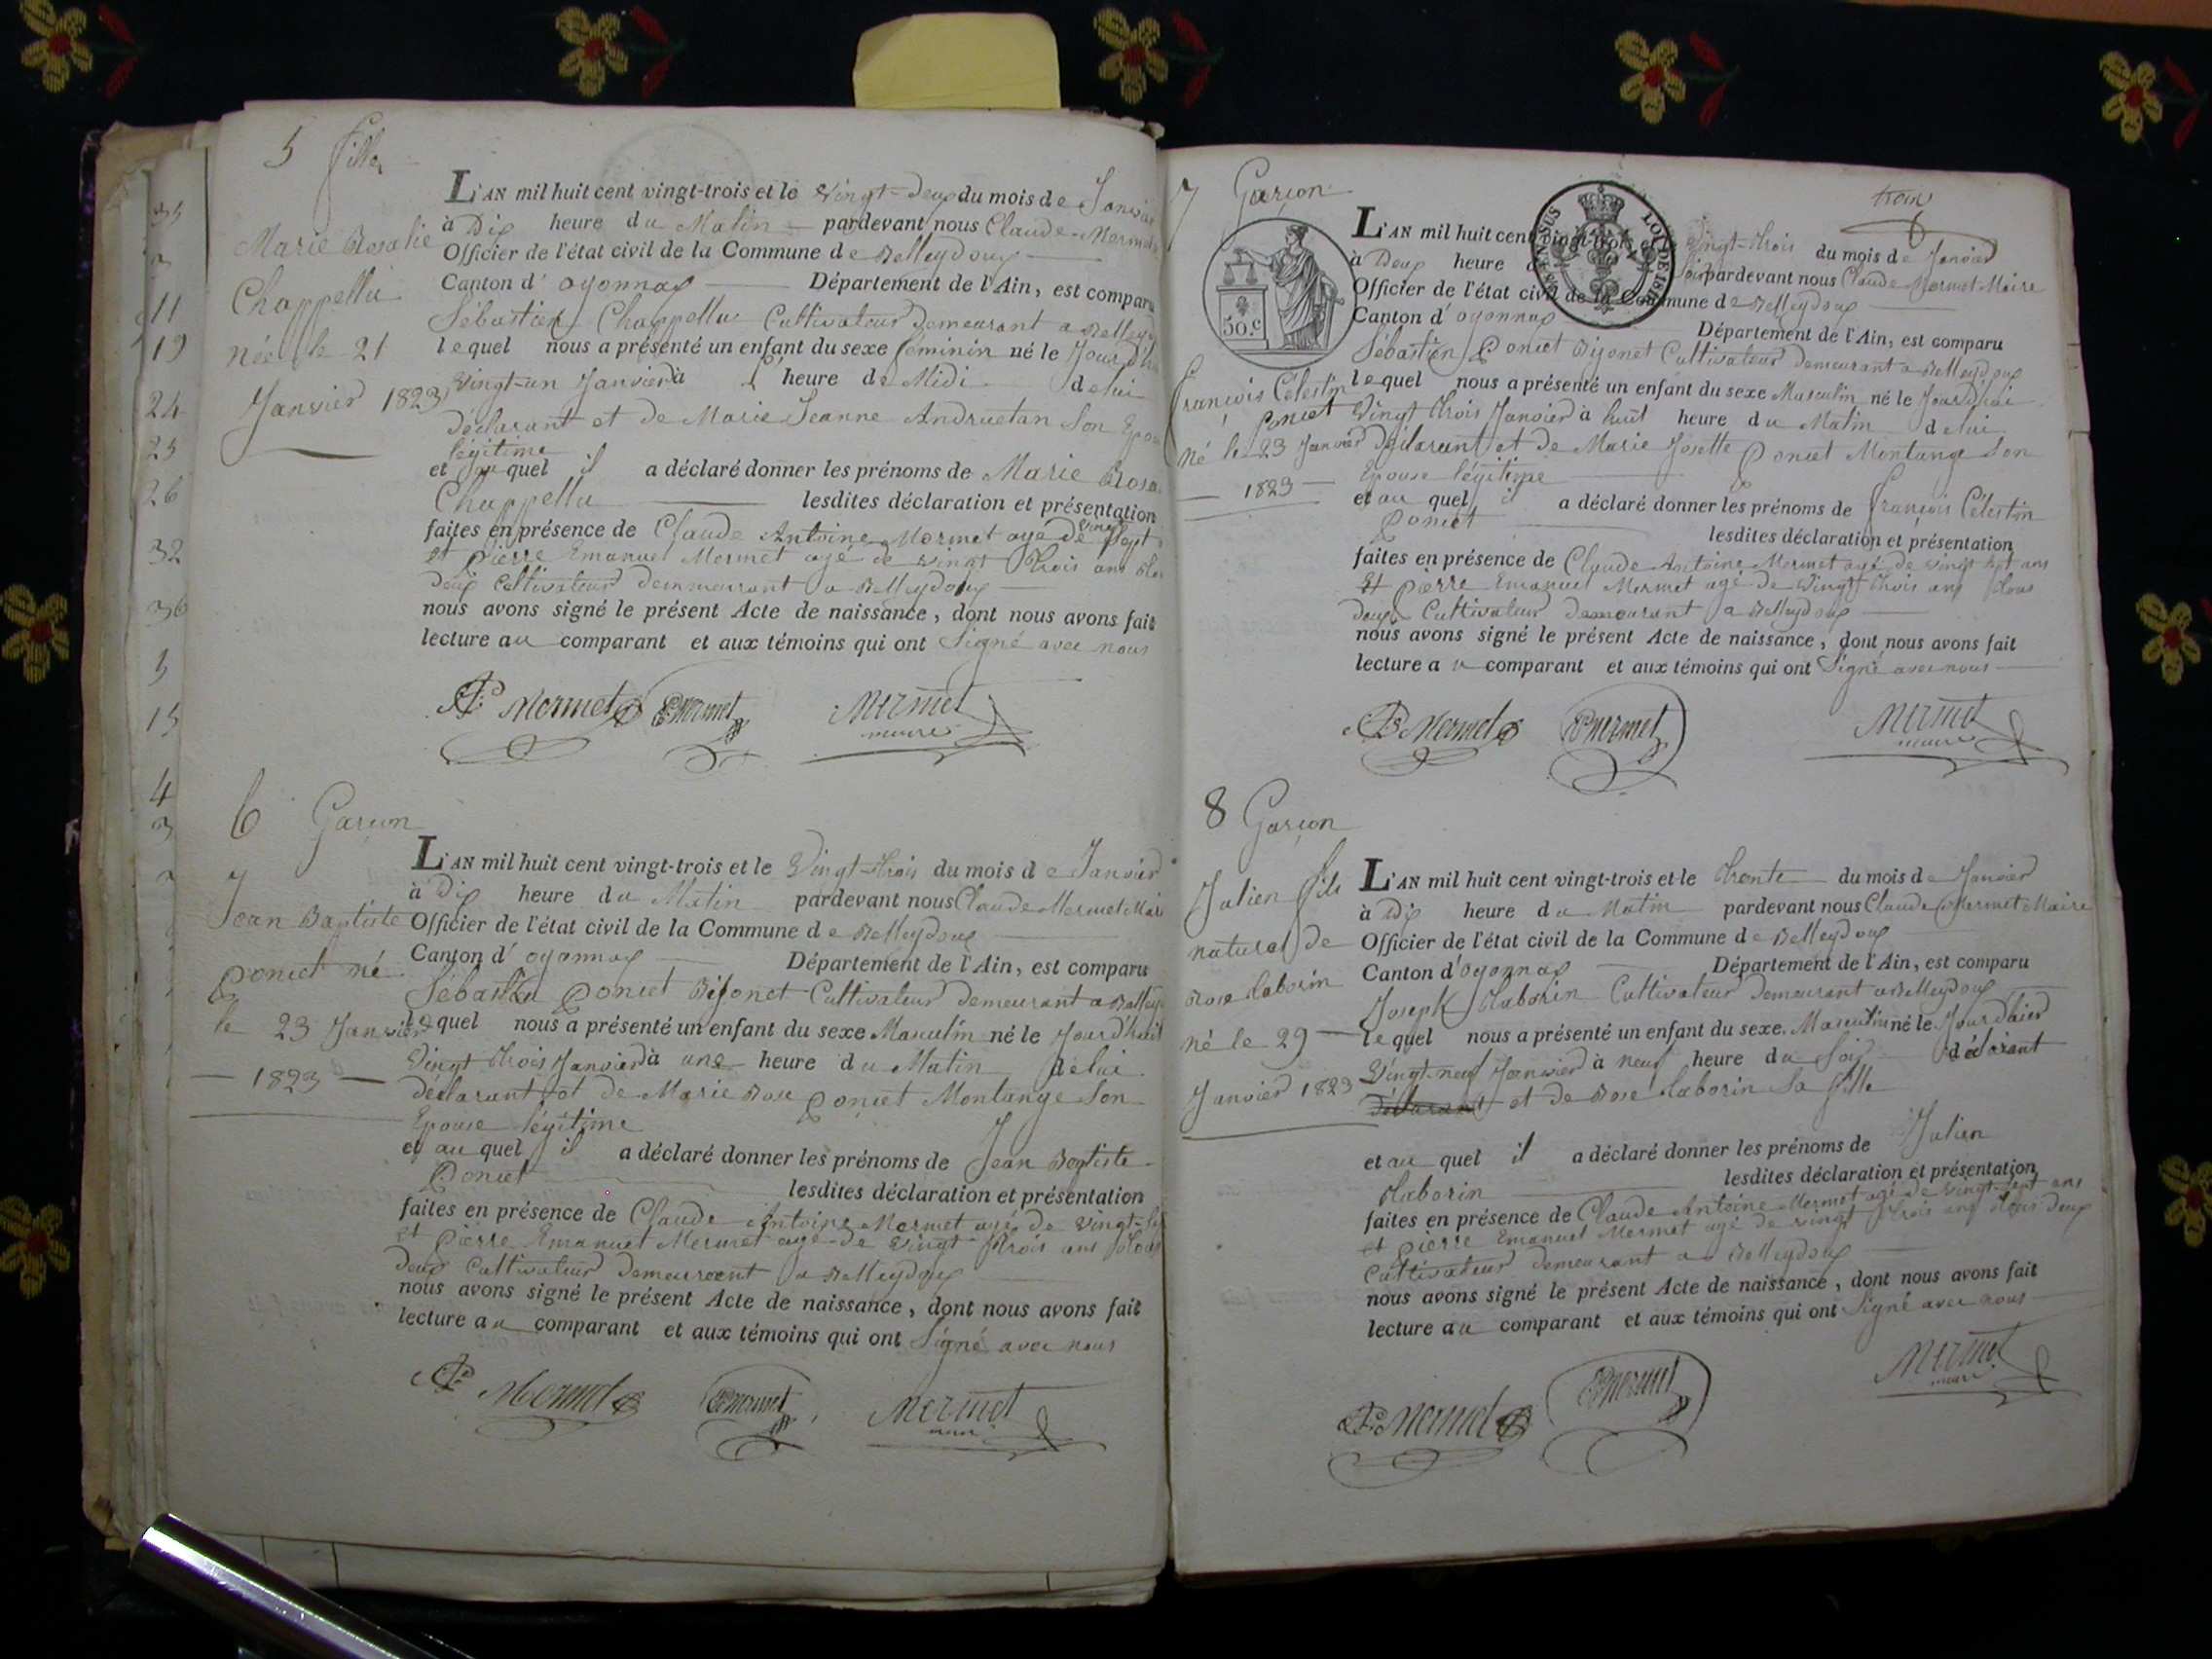 35
3
11
19
24
25
26
32
36
5
15
4
3
5 fille
Marie Rosalie
Chappellu
née le 21
Janvier 1823
L'AN mil huit cent vingt-trois et le Vingt-Deux du mois de Janvier
à Dix heure du Matin pardevant nous Claude Mermet
Officier de l'état civil de la Commune de Belleydoux
Canton d' oyonnax Département de l'Ain, est comparu
Sébastien Chappellu Cultivateur Demeurant a Belleyd
lequel nous a présenté un enfant du sexe féminin né le Jour d'h
Vingt-un Janvier à heure de Midi de lui
déclarant et de Marie Jeanne Andruetan Son Epou
légitime
et au quel il a déclaré donner les prénoms de Marie Rosa
Chappellu lesdites déclaration et présentation
faites en présence de Claude Antoine Mermet agé de vingt Sept
et Pierre Emanuel Mermet agé de vingt trois ans tous
deux Cultivateur demeurant a Belleydoux
nous avons signé le présent Acte de naissance, dont nous avons fait
lecture au comparant et aux témoins qui ont Signé avec nous
Mermet Mermet Mermet
maire
6 Garçon
Jean Baptiste
poncet né
le 23 Janvier
1823
L'AN mil huit cent vingt-trois et le Vingt-trois du mois de Janvier
à Dix heure du Matin pardevant nous Claude Mermet Mair
Officier de l'état civil de la Commune de Belleydoux
Canton d' oyonnax Département de l'Ain, est comparu
Sébastien poncet Bijonet Cultivateur demeurant a Belley
lequel nous a présenté un enfant du sexe Masculin né le Jourdhuit
Vingt trois Janvier à une heure du Matin de lui
déclarant et de Marie Rose poncet Montange Son
Epouse légitime
et au quel il a déclaré donner les prénoms de Jean Baptiste
Poncet lesdites déclaration et présentation
faites en présence de Claude Antoine Mermet agé de vingt-
et Pierre Emanuel Mermet agé de vingt trois ans tous
deux Cultivateur demeurant a Belleydoux
nous avons signé le présent Acte de naissance, dont nous avons fait
lecture au comparant et aux témoins qui ont Signé avec nous
Mermet Mermet Mermet
maire
trois
7 Garçon
50.c
LOI DE 1816
François Célestin
poncet
né le 23 Janvier
1823
L'AN mil huit cent vingt-trois et le vingt-trois du mois de Janvier
à Deux heure du Soir pardevant nous Claude Mermet Maire
Officier de l'état civil de la Commune de Belleydoux
Canton d' oyonnax Département de l'Ain, est comparu
Sébastien poncet Bijonet Cultivateur demeurant a Belleydoux
lequel nous a présenté un enfant du sexe Masculin né le Jourdhui
Vingt trois Janvier à huit heure du Matin de lui
déclarant et de Marie Josette poncet Montange Son
Epouse légitime
et au quel il a déclaré donner les prénoms de françois Célestin
Poncet lesdites déclaration et présentation
faites en présence de Claude Antoine Mermet agé de vingt sept ans
et Pierre Emanuel Mermet agé de vingt trois ans tous
deux Cultivateur demeurant a Belleydoux
nous avons signé le présent Acte de naissance, dont nous avons fait
lecture au comparant et aux témoins qui ont Signé avec nous
Mermet Mermet Mermet
maire
8 Garçon
Julien fils
naturel de
Rose taborin
né le 29
Janvier 1823
L'AN mil huit cent vingt-trois et le trente du mois de Janvier
à Dix heure du Matin pardevant nous Claude Mermet Maire
Officier de l'état civil de la Commune de Belleydoux
Canton d'oyonnax Département de l'Ain, est comparu
Joseph taborin Cultivateur demeurant a Belleydoux
lequel nous a présenté un enfant du sexe Masculin né le Jour d'hier
Vingt-neuf Janvier à neuf heure du Soir déclarant
déclarant et de Rose taborin Sa fille
et au quel il a déclaré donner les prénoms de Julien
taborin lesdites déclaration et présentation
faites en présence de Claude Antoine Mermet agé de vingt-sept ans
et Pierre Emanuel Mermet agé de vingt trois ans tous deux
Cultivateur demeurant a Belleydoux
nous avons signé le présent Acte de naissance, dont nous avons fait
lecture au comparant et aux témoins qui ont Signé avec nous
Mermet Mermet Mermet
maire